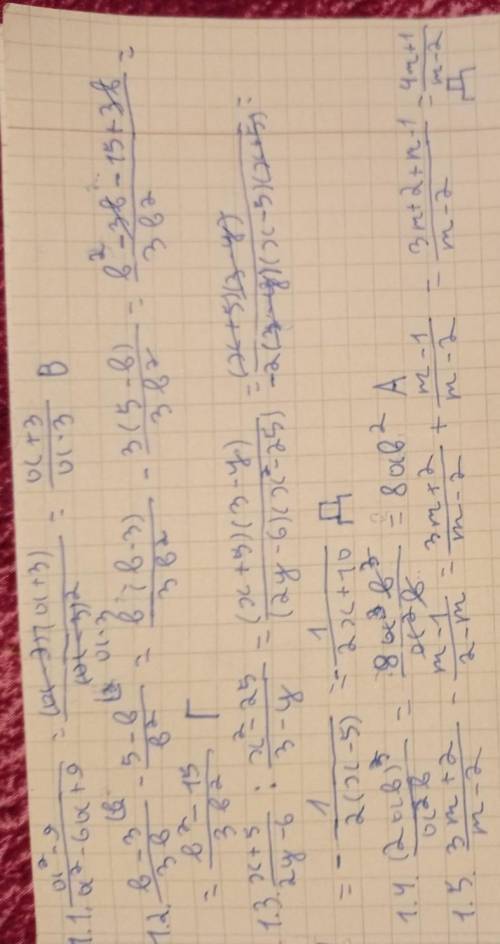 1.1. (a² - 9)/(a² - 6a + 9) = ((a - 3)(a + 3))/(a - 3)² = (a + 3)/(a - 3) В
1.2. (b - 3)/3b - (5 - b)/b² = (b(b - 3))/3b² - (3(5 - b))/3b² = (b² - 3b - 15 + 3b)/3b² =
= (b² - 15)/3b² Г
1.3. (x + 5)/(2y - 6) : (x² - 25)/(3 - y) = ((x + 5)(3 - y))/((2y - 6)(x² - 25)) = ((x + 5)(3 - y))/(-2(3 - y)(x - 5)(x + 5)) =
= - 1/(2(x - 5)) = - 1/(2x + 10) Д
1.4. (2ab)³/a²b = 8a³b³/a²b = 8ab² А
1.5. (3m + 2)/(m - 2) - (m - 1)/(2 - m) = (3m + 2)/(m - 2) + (m - 1)/(m - 2) = (3m + 2 + m - 1)/(m - 2) = (4m + 1)/(m - 2) Д